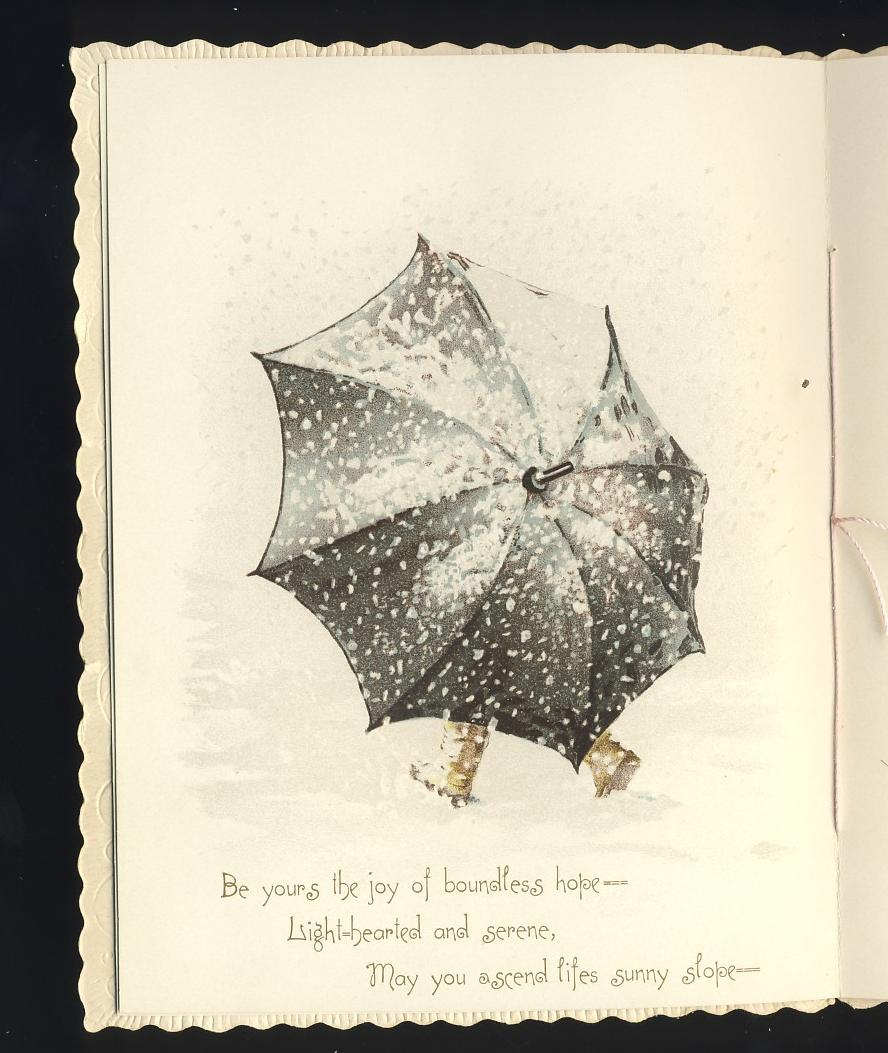 Be yours the joy of boundless hope==
Light-hearted and serene,
May you ascend lifes sunny slope==